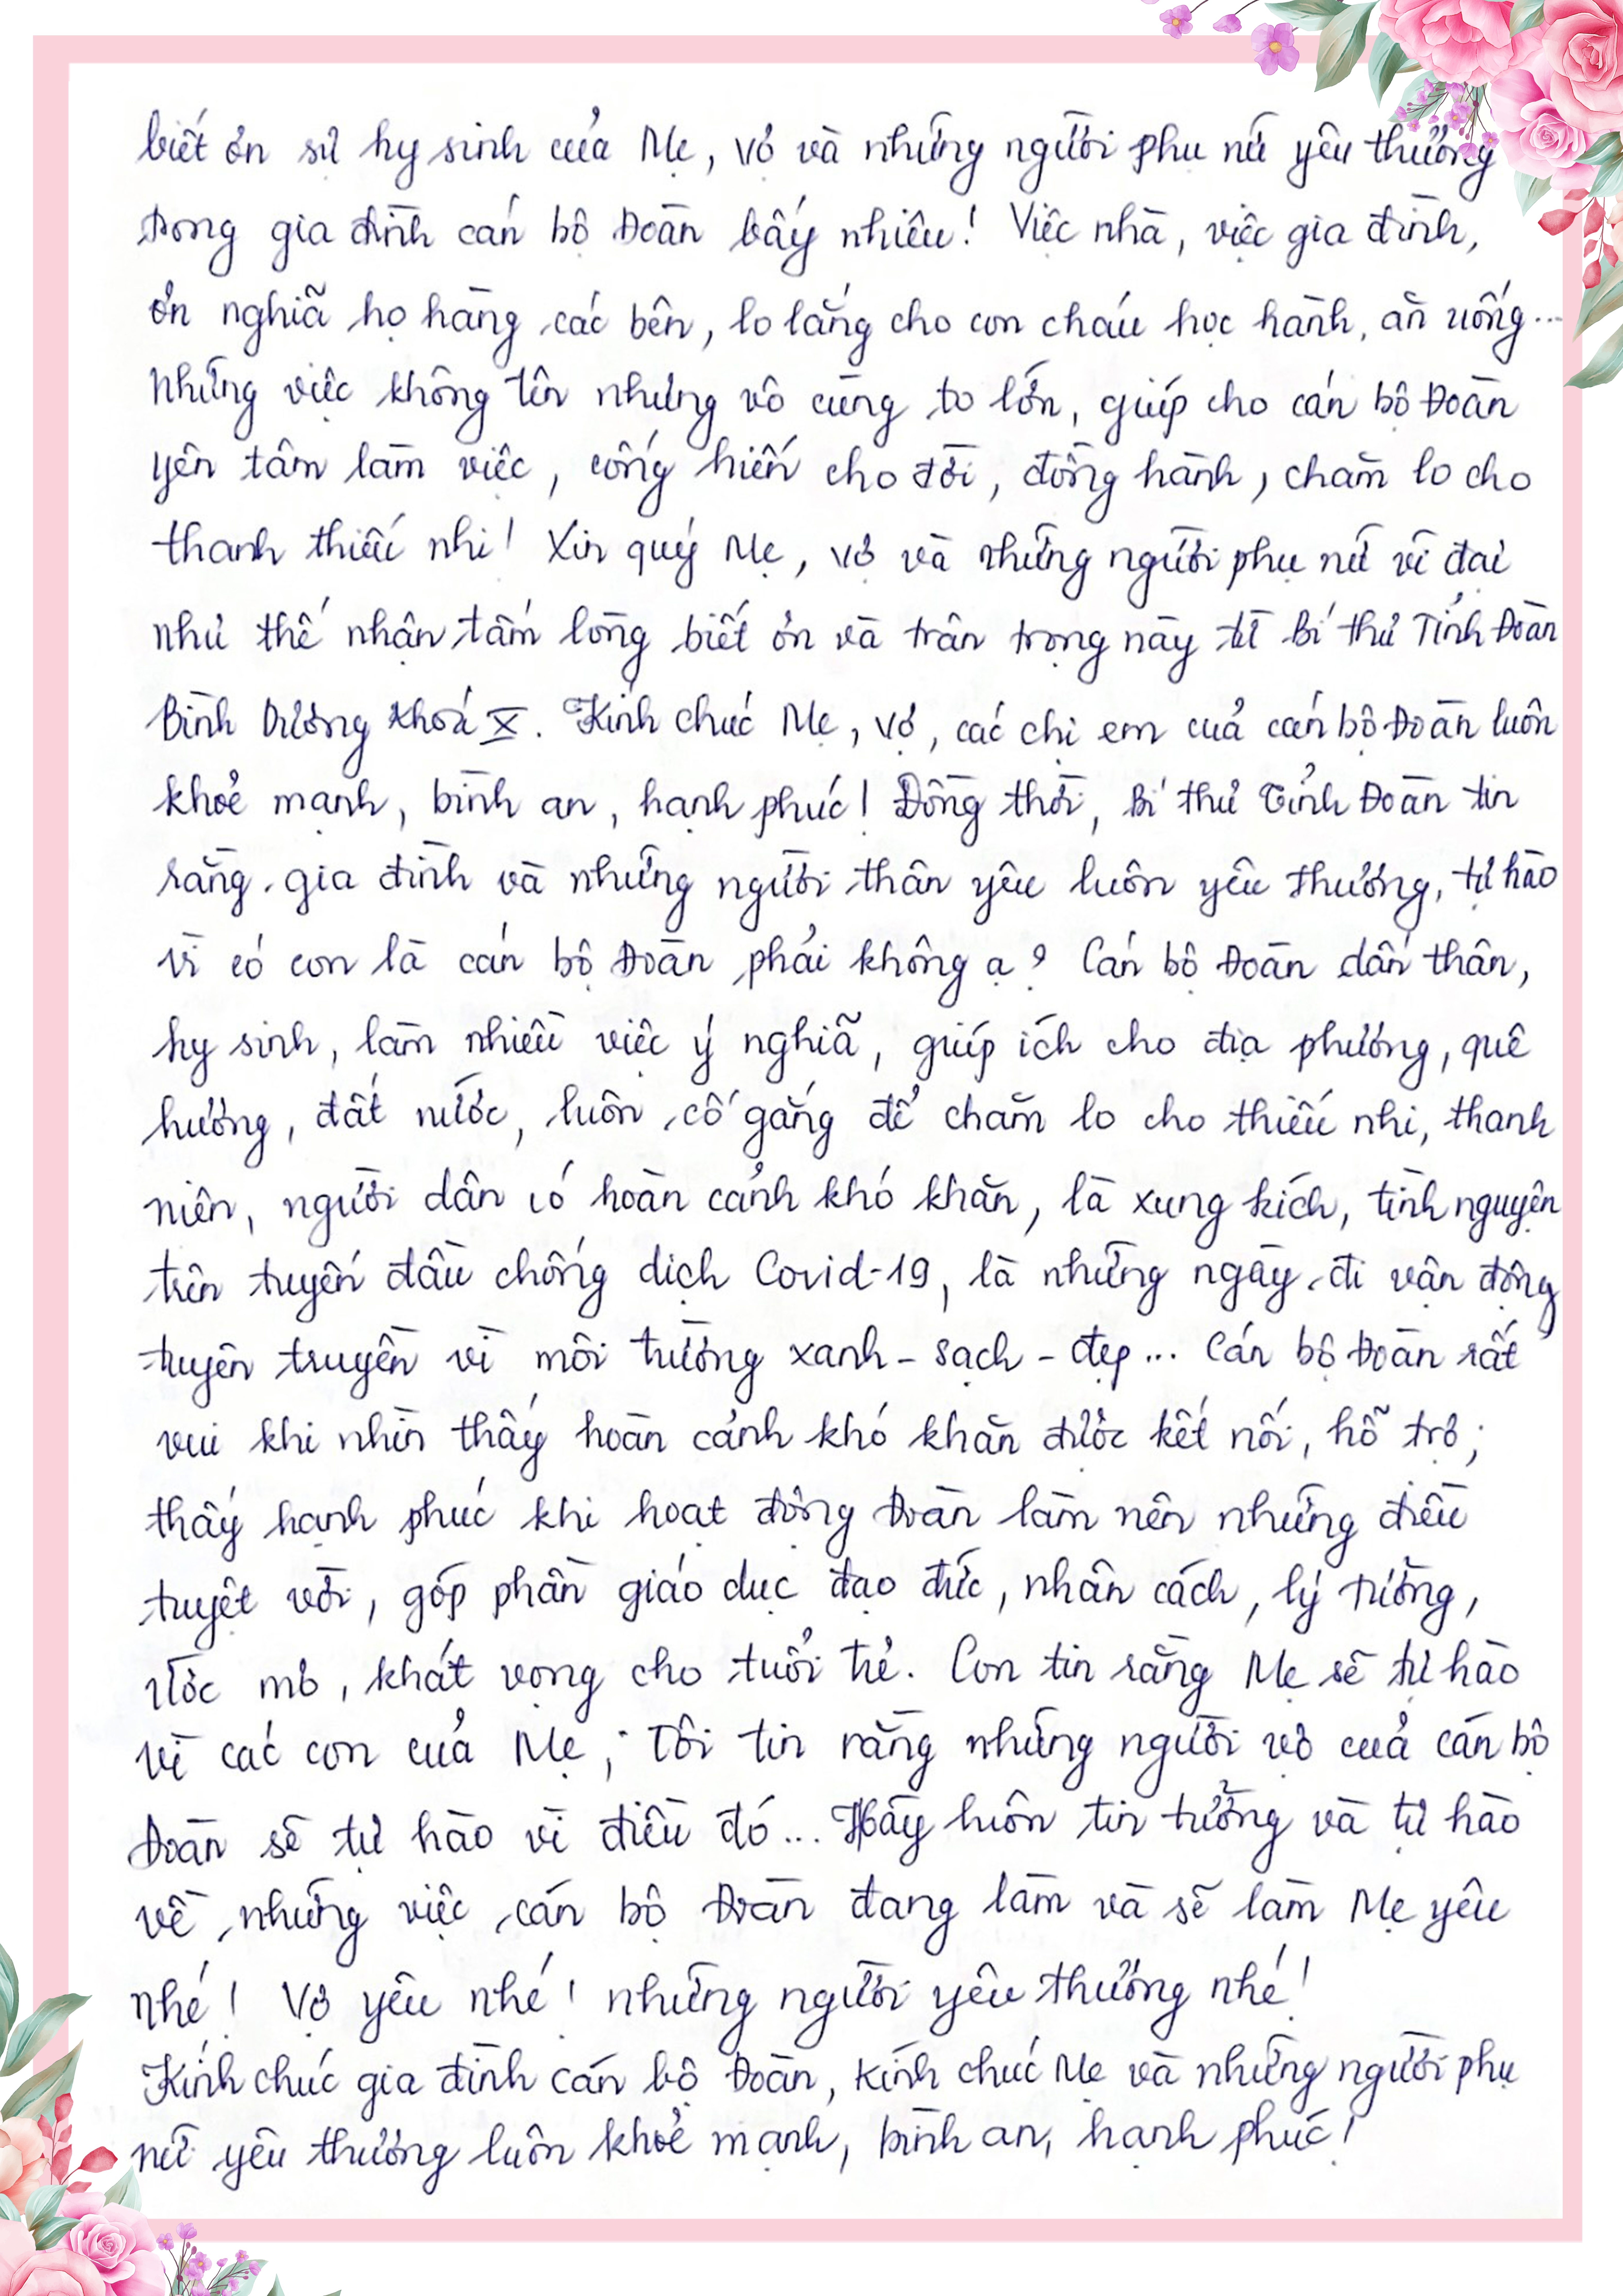 biết ơn sự hy sinh của Mẹ, vợ và những người phụ nữ yêu thương
trong gia đình cán bộ Đoàn bấy nhiêu! Việc nhà, việc gia đình,
ơn nghĩa họ hàng các bên, lo lắng cho con cháu học hành, ăn uống...
Những việc không tên nhưng vô cùng to lớn, giúp cho cán bộ Đoàn
yên tâm làm việc, cống hiến cho đời, đồng hành, chăm lo cho
thanh thiếu nhi! Xin quý Mẹ, vợ và những người phụ nữ vĩ đại
như thế nhận tấm lòng biết ơn và trân trọng này từ Bí thư Tỉnh Đoàn
Bình Dương khoá X. Kính chúc Mẹ, vợ, các chị em của cán bộ Đoàn luôn
khoẻ mạnh, bình an, hạnh phúc! Đồng thời, Bí thư Tỉnh Đoàn tin
rằng gia đình và những người thân yêu luôn yêu thương, tự hào
vì có con là cán bộ Đoàn phải không ạ? Cán bộ Đoàn dấn thân,
hy sinh, làm nhiều việc ý nghĩa, giúp ích cho địa phương, quê
hương, đất nước, luôn cố gắng để chăm lo cho thiếu nhi, thanh
niên, người dân có hoàn cảnh khó khăn, là xung kích, tình nguyện
trên tuyến đầu chống dịch Covid-19, là những ngày đi vận động
tuyên truyền vì môi trường xanh - sạch - đẹp... Cán bộ Đoàn rất
vui khi nhìn thấy hoàn cảnh khó khăn được kết nối, hỗ trợ;
thấy hạnh phúc khi hoạt động Đoàn làm nên những điều
tuyệt vời, góp phần giáo dục đạo đức, nhân cách, lý tưởng,
ước mơ, khát vọng cho tuổi trẻ. Con tin rằng Mẹ sẽ tự hào
vì các con của Mẹ; Tôi tin rằng những người vợ của cán bộ
Đoàn sẽ tự hào vì điều đó... Hãy luôn tin tưởng và tự hào
về những việc cán bộ Đoàn đang làm và sẽ làm Mẹ yêu
nhé! Vợ yêu nhé! những người yêu thương nhé!
Kính chúc gia đình cán bộ Đoàn, kính chúc Mẹ và những người phụ
nữ yêu thương luôn khoẻ mạnh, bình an, hạnh phúc!